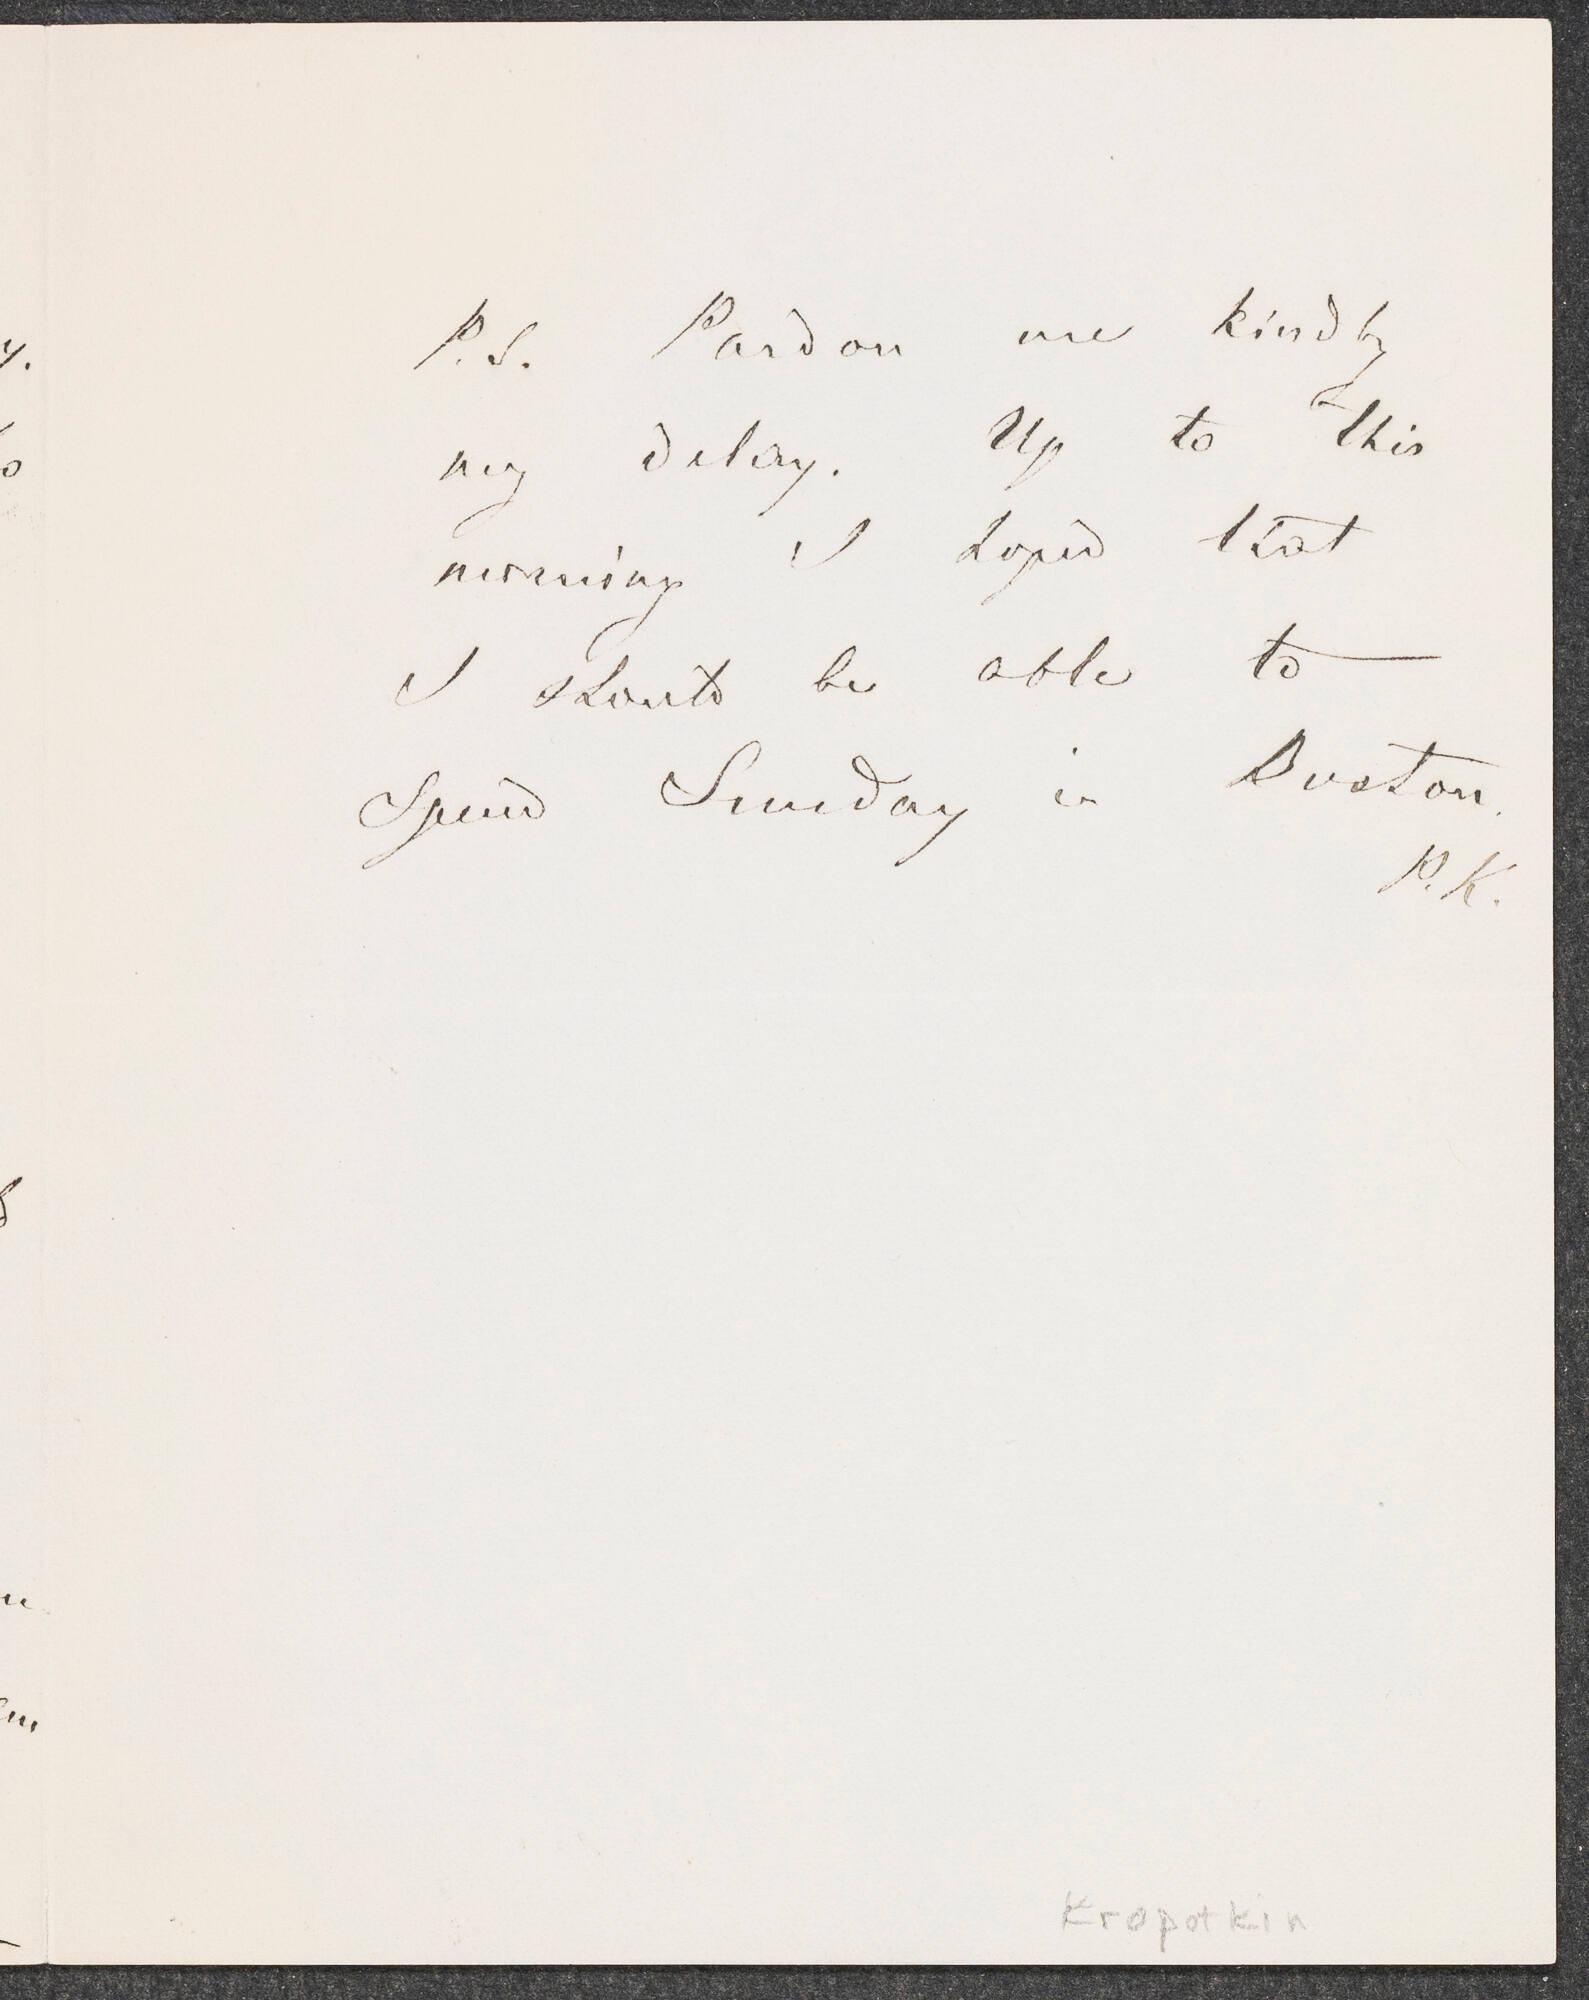 P.S. Pardon me kindly
my delay. Up to this
morning I hoped that
I should be able to
Spend Sunday in Boston.
P.K.
Kropotkin